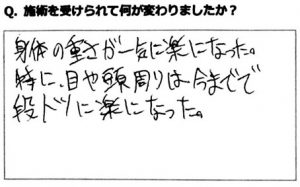 Q. 施術を受けられて何が変わりましたか？
身体の重さが一気に楽になった。
特に、目や頭周りは今までで
段ドツに楽になった。